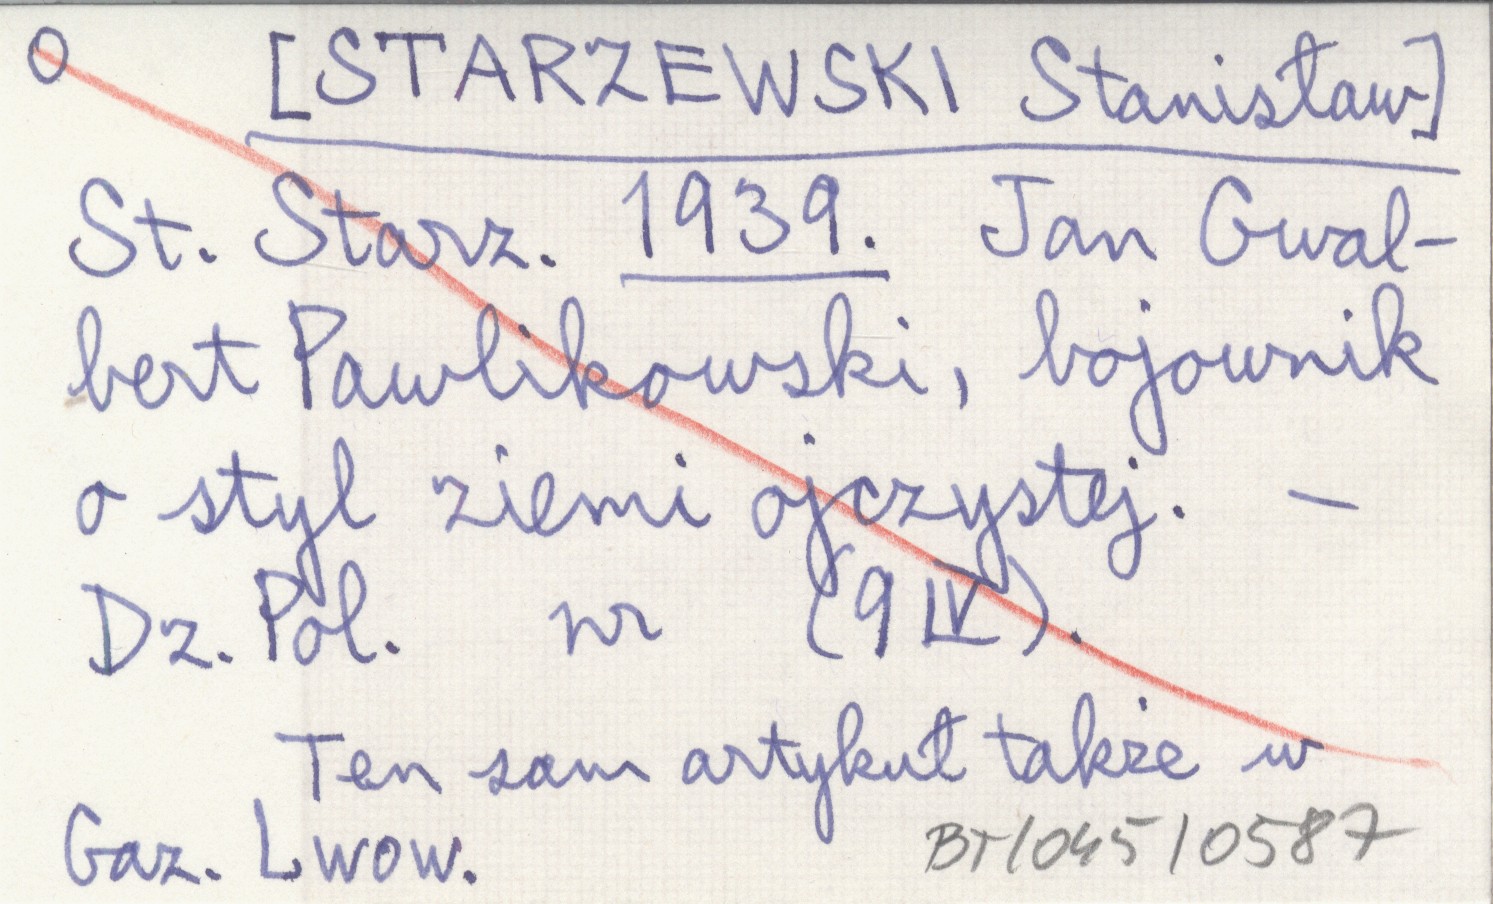 O [STARZEWSKI Stanisław]
St. Starz. 1939. Jan Gwal-
bert Pawlikowski, bojownik
o styl ziemi ojczystej. —
Dz. Pol. nr (9 IV).
Ten sam artykuł także w
Gaz. Lwow.
BT/045/0587